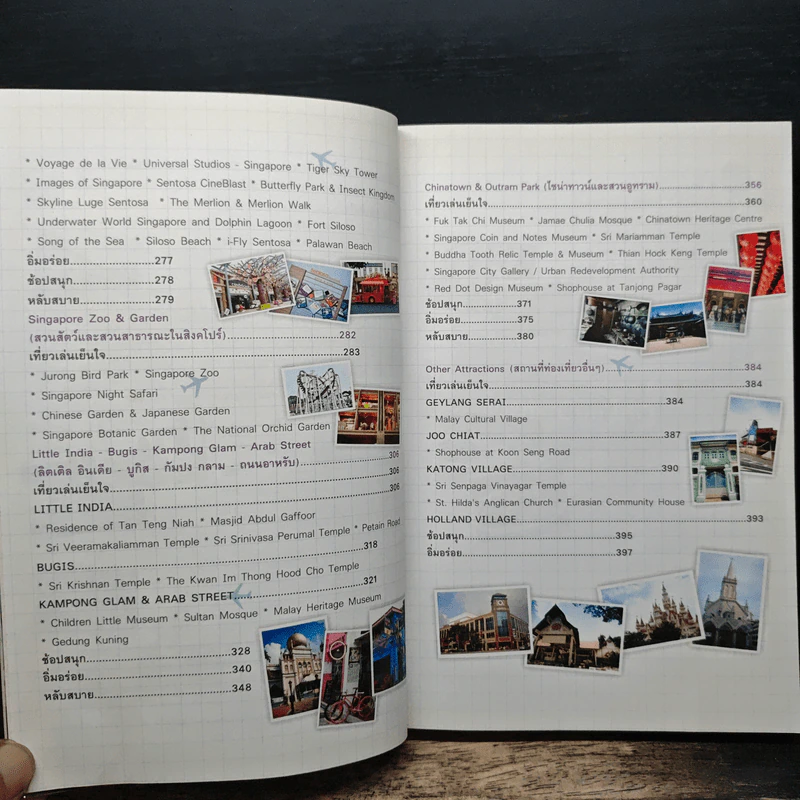 * Voyage de la Vie * Universal Studios - Singapore * Tiger Sky Tower
* Images of Singapore * Sentosa CineBlast * Butterfly Park & Insect Kingdom
* Skyline Luge Sentosa * The Merlion & Merlion Walk
* Underwater World Singapore and Dolphin Lagoon * Fort Siloso
* Song of the Sea * Siloso Beach * i-Fly Sentosa * Palawan Beach
อิ่มอร่อย........................277
ช้อปสนุก........................278
หลับสบาย........................279
Singapore Zoo & Garden
(สวนสัตว์และสวนสาธารณะในสิงคโปร์)........................282
เที่ยวเล่นเย็นใจ........................283
* Jurong Bird Park * Singapore Zoo
* Singapore Night Safari
* Chinese Garden & Japanese Garden
* Singapore Botanic Garden * The National Orchid Garden
Little India - Bugis - Kampong Glam - Arab Street
(ลิตเติล อินเดีย - บูกิส - กัมปง กลาม - ถนนอาหรับ)........................306
เที่ยวเล่นเย็นใจ........................306
LITTLE INDIA........................306
* Residence of Tan Teng Niah * Masjid Abdul Gaffoor
* Sri Veeramakaliamman Temple * Sri Srinivasa Perumal Temple * Petain Road
BUGIS........................318
* Sri Krishnan Temple * The Kwan Im Thong Hood Cho Temple
KAMPONG GLAM & ARAB STREET........................321
* Children Little Museum * Sultan Mosque * Malay Heritage Museum
* Gedung Kuning
ช้อปสนุก........................328
อิ่มอร่อย........................340
หลับสบาย........................348
Chinatown & Outram Park (ไชน่าทาวน์และสวนอูทราม)........................356
เที่ยวเล่นเย็นใจ........................360
* Fuk Tak Chi Museum * Jamae Chulia Mosque * Chinatown Heritage Centre
* Singapore Coin and Notes Museum * Sri Mariamman Temple
* Buddha Tooth Relic Temple & Museum * Thian Hock Keng Temple
* Singapore City Gallery / Urban Redevelopment Authority
* Red Dot Design Museum * Shophouse at Tanjong Pagar
ช้อปสนุก........................371
อิ่มอร่อย........................375
หลับสบาย........................380
Other Attractions (สถานที่ท่องเที่ยวอื่นๆ)........................384
เที่ยวเล่นเย็นใจ........................384
GEYLANG SERAI........................384
* Malay Cultural Village
JOO CHIAT........................387
* Shophouse at Koon Seng Road
KATONG VILLAGE........................390
* Sri Senpaga Vinayagar Temple
* St. Hilda's Anglican Church * Eurasian Community House
HOLLAND VILLAGE........................393
ช้อปสนุก........................395
อิ่มอร่อย........................397